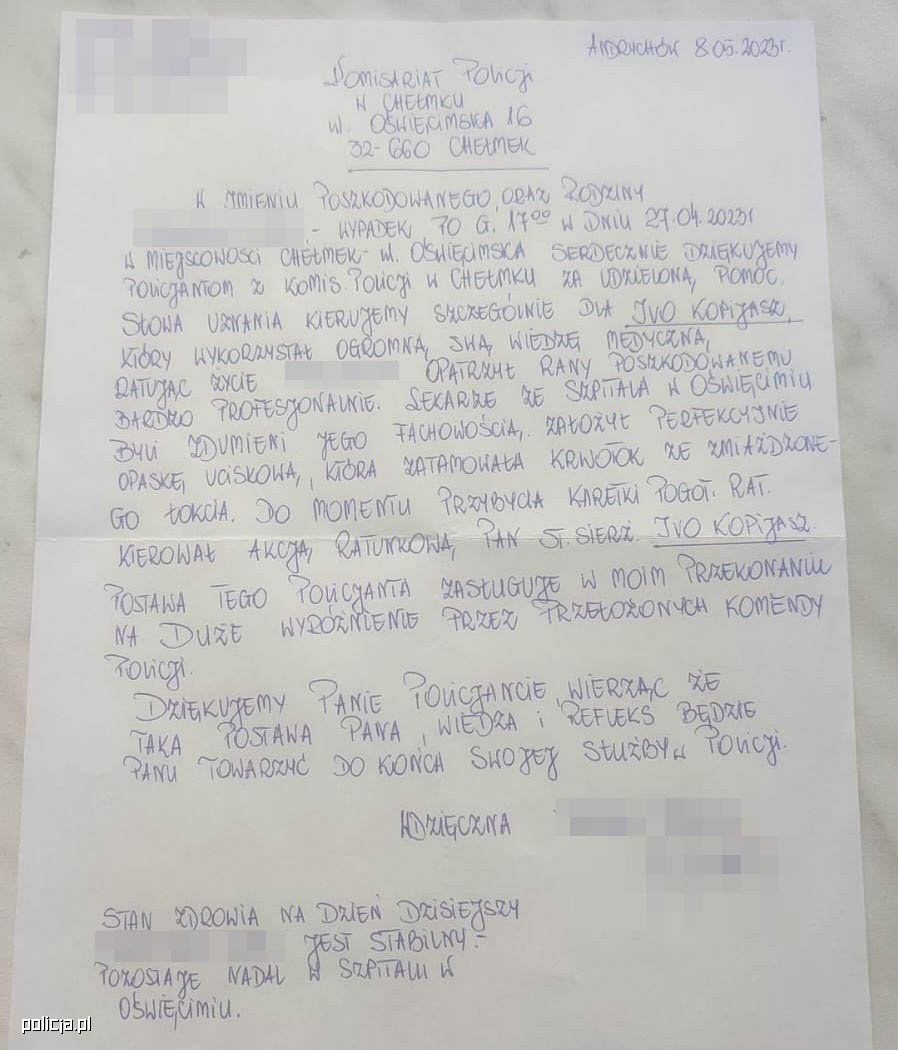 ANDRYCHÓW 8.05.2023r.
KOMISARIAT POLICJI
W CHEŁMKU
ul. OŚWIĘCIMSKA 16
32-660 CHEŁMEK
W IMIENIU POSZKODOWANEGO ORAZ RODZINY
- WYPADEK, PO G. 17⁰⁰ W DNIU 27.04.2023r
W MIEJSCOWOŚCI CHEŁMEK - ul. OŚWIĘCIMSKA SERDECZNIE DZIĘKUJEMY
POLICJANTOM Z KOMIS. POLICJI W CHEŁMKU ZA UDZIELONĄ POMOC.
SŁOWA UZNANIA KIERUJEMY SZCZEGÓLNIE DLA IVO KOPIJASZ,
KTÓRY WYKORZYSTAŁ OGROMNĄ SWĄ WIEDZĘ MEDYCZNĄ,
RATUJĄC ŻYCIE OPATRZYŁ RANY POSZKODOWANEMU
BARDZO PROFESJONALNIE. LEKARZE ZE SZPITALA W OŚWIĘCIMIU
BYLI ZDUMIENI JEGO FACHOWOŚCIĄ. ZAŁOŻYŁ PERFEKCYJNIE
OPASKĘ UCISKOWĄ, KTÓRA ZATAMOWAŁA KRWOTOK ZE ZMIAŻDŻONE-
GO ŁOKCIA. DO MOMENTU PRZYBYCIA KARETKI POGOT. RAT.
KIEROWAŁ AKCJĄ RATUNKOWĄ PAN ST. SIERŻ. IVO KOPIJASZ.
POSTAWA TEGO POLICJANTA ZASŁUGUJE W MOIM PRZEKONANIU
NA DUŻE WYRÓŻNIENIE PRZEZ PRZEŁOŻONYCH KOMENDY
POLICJI.
DZIĘKUJEMY PANIE POLICJANCIE, WIERZĄC ŻE
TAKA POSTAWA PANA, WIEDZA i REFLEKS BĘDZIE
PANU TOWARZYĆ DO KOŃCA SWOJEJ SŁUŻBY W POLICJI.
WDZIĘCZNA
STAN ZDROWIA NA DZIEŃ DZISIEJSZY
JEST STABILNY -
POZOSTAJE NADAL W SZPITALU W
OŚWIĘCIMIU.
policja.pl